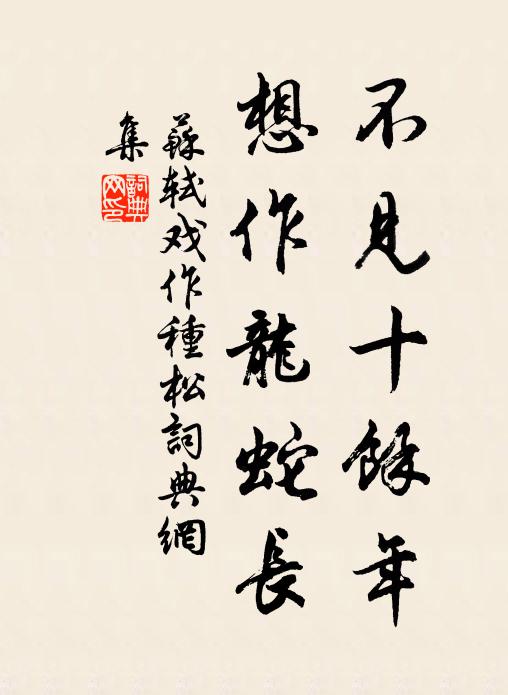 不見十餘年
想作龍蛇長
蘇軾戏作種松詞典網
集
詞典
网印